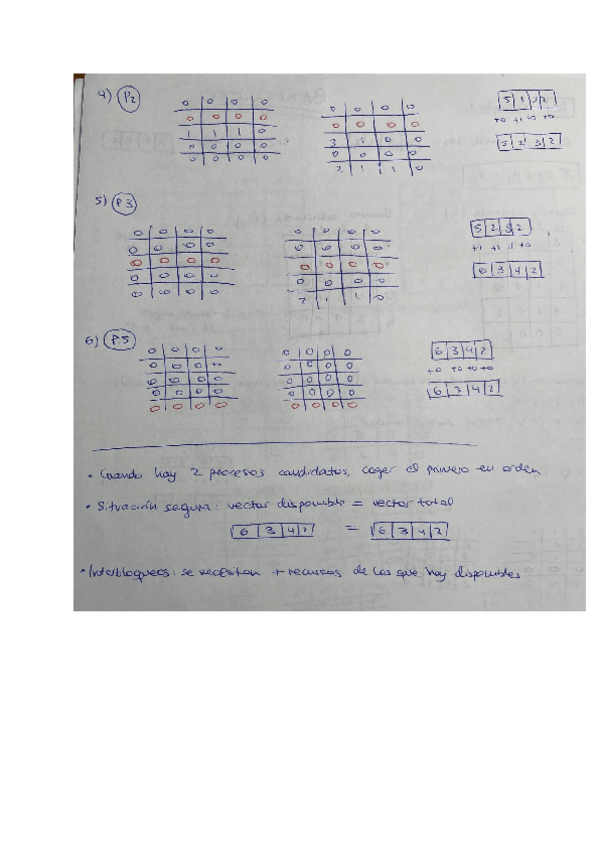 4) P2
0 0 0 0 0 0 0 0 5 1 3 2
0 0 0 0 0 0 0 0 +0 +1 +0 +0
1 1 1 0 3 1 0 0 5 2 3 2
0 0 0 0 0 0 0 0
0 0 0 0 2 1 1 0
5) P3
0 0 0 0 0 0 0 0 5 2 3 2
0 0 0 0 0 0 0 0 +1 +1 +1 +0
0 0 0 0 0 0 0 0 6 3 4 2
0 0 0 0 0 0 0 0
0 0 0 0 2 1 1 0
6) P5
0 0 0 0 0 0 0 0 6 3 4 2
0 0 0 0 0 0 0 0 +0 +0 +0 +0
0 0 0 0 0 0 0 0 6 3 4 2
0 0 0 0 0 0 0 0
0 0 0 0 0 0 0 0
• Cuando hay 2 procesos candidatos, coger el primero en orden
• Situación segura: vector disponible = vector total
6 3 4 2 = 6 3 4 2
• Interbloqueos: se necesitan + recursos de los que hay disponibles